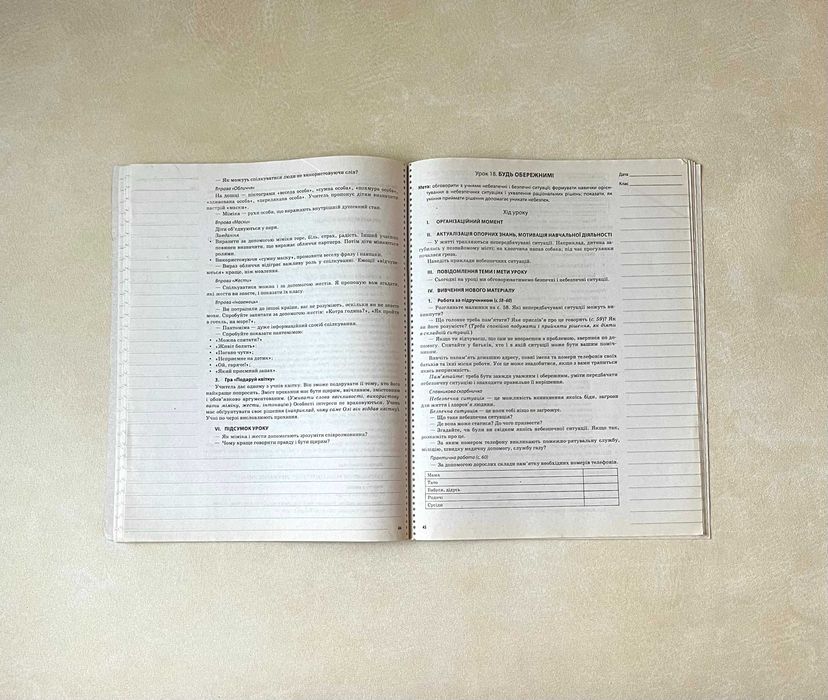 — Як можуть спілкуватися люди не використовуючи слів?
Вправа «Обличчя»
На дошці — піктограми «весела особа», «сумна особа», «похмура особа»,
«здивована особа», «перелякана особа». Учитель пропонує дітям визначити
настрій «маски».
— Міміка — рухи особи, що виражають внутрішній душевний стан.
Вправа «Маски»
Діти об'єднуються у пари.
Завдання
• Виразити за допомогою міміки горе, біль, страх, радість. Інший учасник
повинен визначити, що виражає обличчя партнера. Потім діти міняються
ролями.
• Використовуючи «сумну маску», промовити веселу фразу і навпаки.
— Вираз обличчя відіграє важливу роль у спілкуванні. Емоції «відчува-
ються» краще, ніж мовлення.
Вправа «Жести»
— Спілкуватися можна і за допомогою жестів. Я пропоную вам згадати,
які жести ви знаєте, і показати їх класу.
Вправа «Іноземець»
— Ви потрапили до іншої країни, вас не розуміють, оскільки ви не знаєте
мови. Спробуйте запитати за допомогою жестів: «Котра година?», «Як пройти
в готель, на море?».
— Пантоміма — дуже інформаційний спосіб спілкування.
— Спробуйте показати пантомімою:
• «Можна спитати?»
• «Живіт болить».
• «Погано чути».
• «Неприємне на дотик».
• «Ой, гаряче!».
• «Який приємний запах».
3. Гра «Подаруй квітку»
Учитель дає одному з учнів квітку. Він зможе подарувати її тому, хто його
найкраще попросить. Зміст прохання має бути щирим, ввічливим, змістовним
і обов'язково аргументованим. (Уживати слова ввічливості, використову-
вати міміку, жести, інтонацію) Особисті інтереси не враховуються. Учень
має обґрунтувати своє рішення (наприклад, чому саме Олі він віддав квітку).
Учні по черзі висловлюють прохання.
VI. ПІДСУМОК УРОКУ
— Як міміка і жести допомагають зрозуміти співрозмовника?
— Чому краще говорити правду і бути щирим?
44
Урок 18. БУДЬ ОБЕРЕЖНИМ!
Дата
Клас
Мета: обговорити з учнями небезпечні і безпечні ситуації; формувати навички орієн-
тування в небезпечних ситуаціях і ухвалення раціональних рішень; показати, як
уміння приймати рішення допомагає уникати небезпек.
Хід уроку
I. ОРГАНІЗАЦІЙНИЙ МОМЕНТ
II. АКТУАЛІЗАЦІЯ ОПОРНИХ ЗНАНЬ, МОТИВАЦІЯ НАВЧАЛЬНОЇ ДІЯЛЬНОСТІ
У житті трапляються непередбачувані ситуації. Наприклад, дитина за-
губилась у незнайомому місті; на хлопчика напав собака; під час прогулянки
почалася гроза.
Наведіть приклади небезпечних ситуацій.
III. ПОВІДОМЛЕННЯ ТЕМИ І МЕТИ УРОКУ
— Сьогодні на уроці ми обговорюватимемо безпечні і небезпечні ситуації.
IV. ВИВЧЕННЯ НОВОГО МАТЕРІАЛУ
1. Робота за підручником (с. 58–60)
— Розгляньте малюнки на с. 58. Які непередбачувані ситуації можуть ви-
никнути?
— Що головне треба пам'ятати? Яке прислів'я про це говорить (с. 59)? Як
ви його розумієте? (Треба спокійно подумати і прийняти рішення, як діяти
в складній ситуації.)
Якщо ти відчуваєш, що сам не впораєшся з проблемою, звернися по до-
помогу. Спитайте у батьків, хто і в якій ситуації може бути вашим поміч-
ником.
Вивчіть напам'ять домашню адресу, повні імена та номери телефонів своїх
батьків та їхні місця роботи. Усе це може знадобитися, якщо з вами трапиться
якась неприємність.
Пам'ятайте: треба бути завжди уважним і обережним, уміти передбачати
небезпечну ситуацію і знаходити правильне її вирішення.
Словникова скарбничка
Небезпечна ситуація — це можливість виникнення якоїсь біди, загрози
для життя і здоров'я людини.
Безпечна ситуація — це коли тобі ніщо не загрожує.
— Що таке небезпечна ситуація?
— Де вона може статися? До чого призвести?
— Згадайте, чи були ви свідком якоїсь небезпечної ситуації. Якщо так,
розкажіть про це.
— За яким номером телефону викликають пожежно-рятувальну службу,
міліцію, швидку медичну допомогу, службу газу?
Практична робота (с. 60)
— За допомогою дорослих склади пам'ятку необхідних номерів телефонів.
Мама
Тато
Бабуся, дідусь
Родичі
Сусіди
45